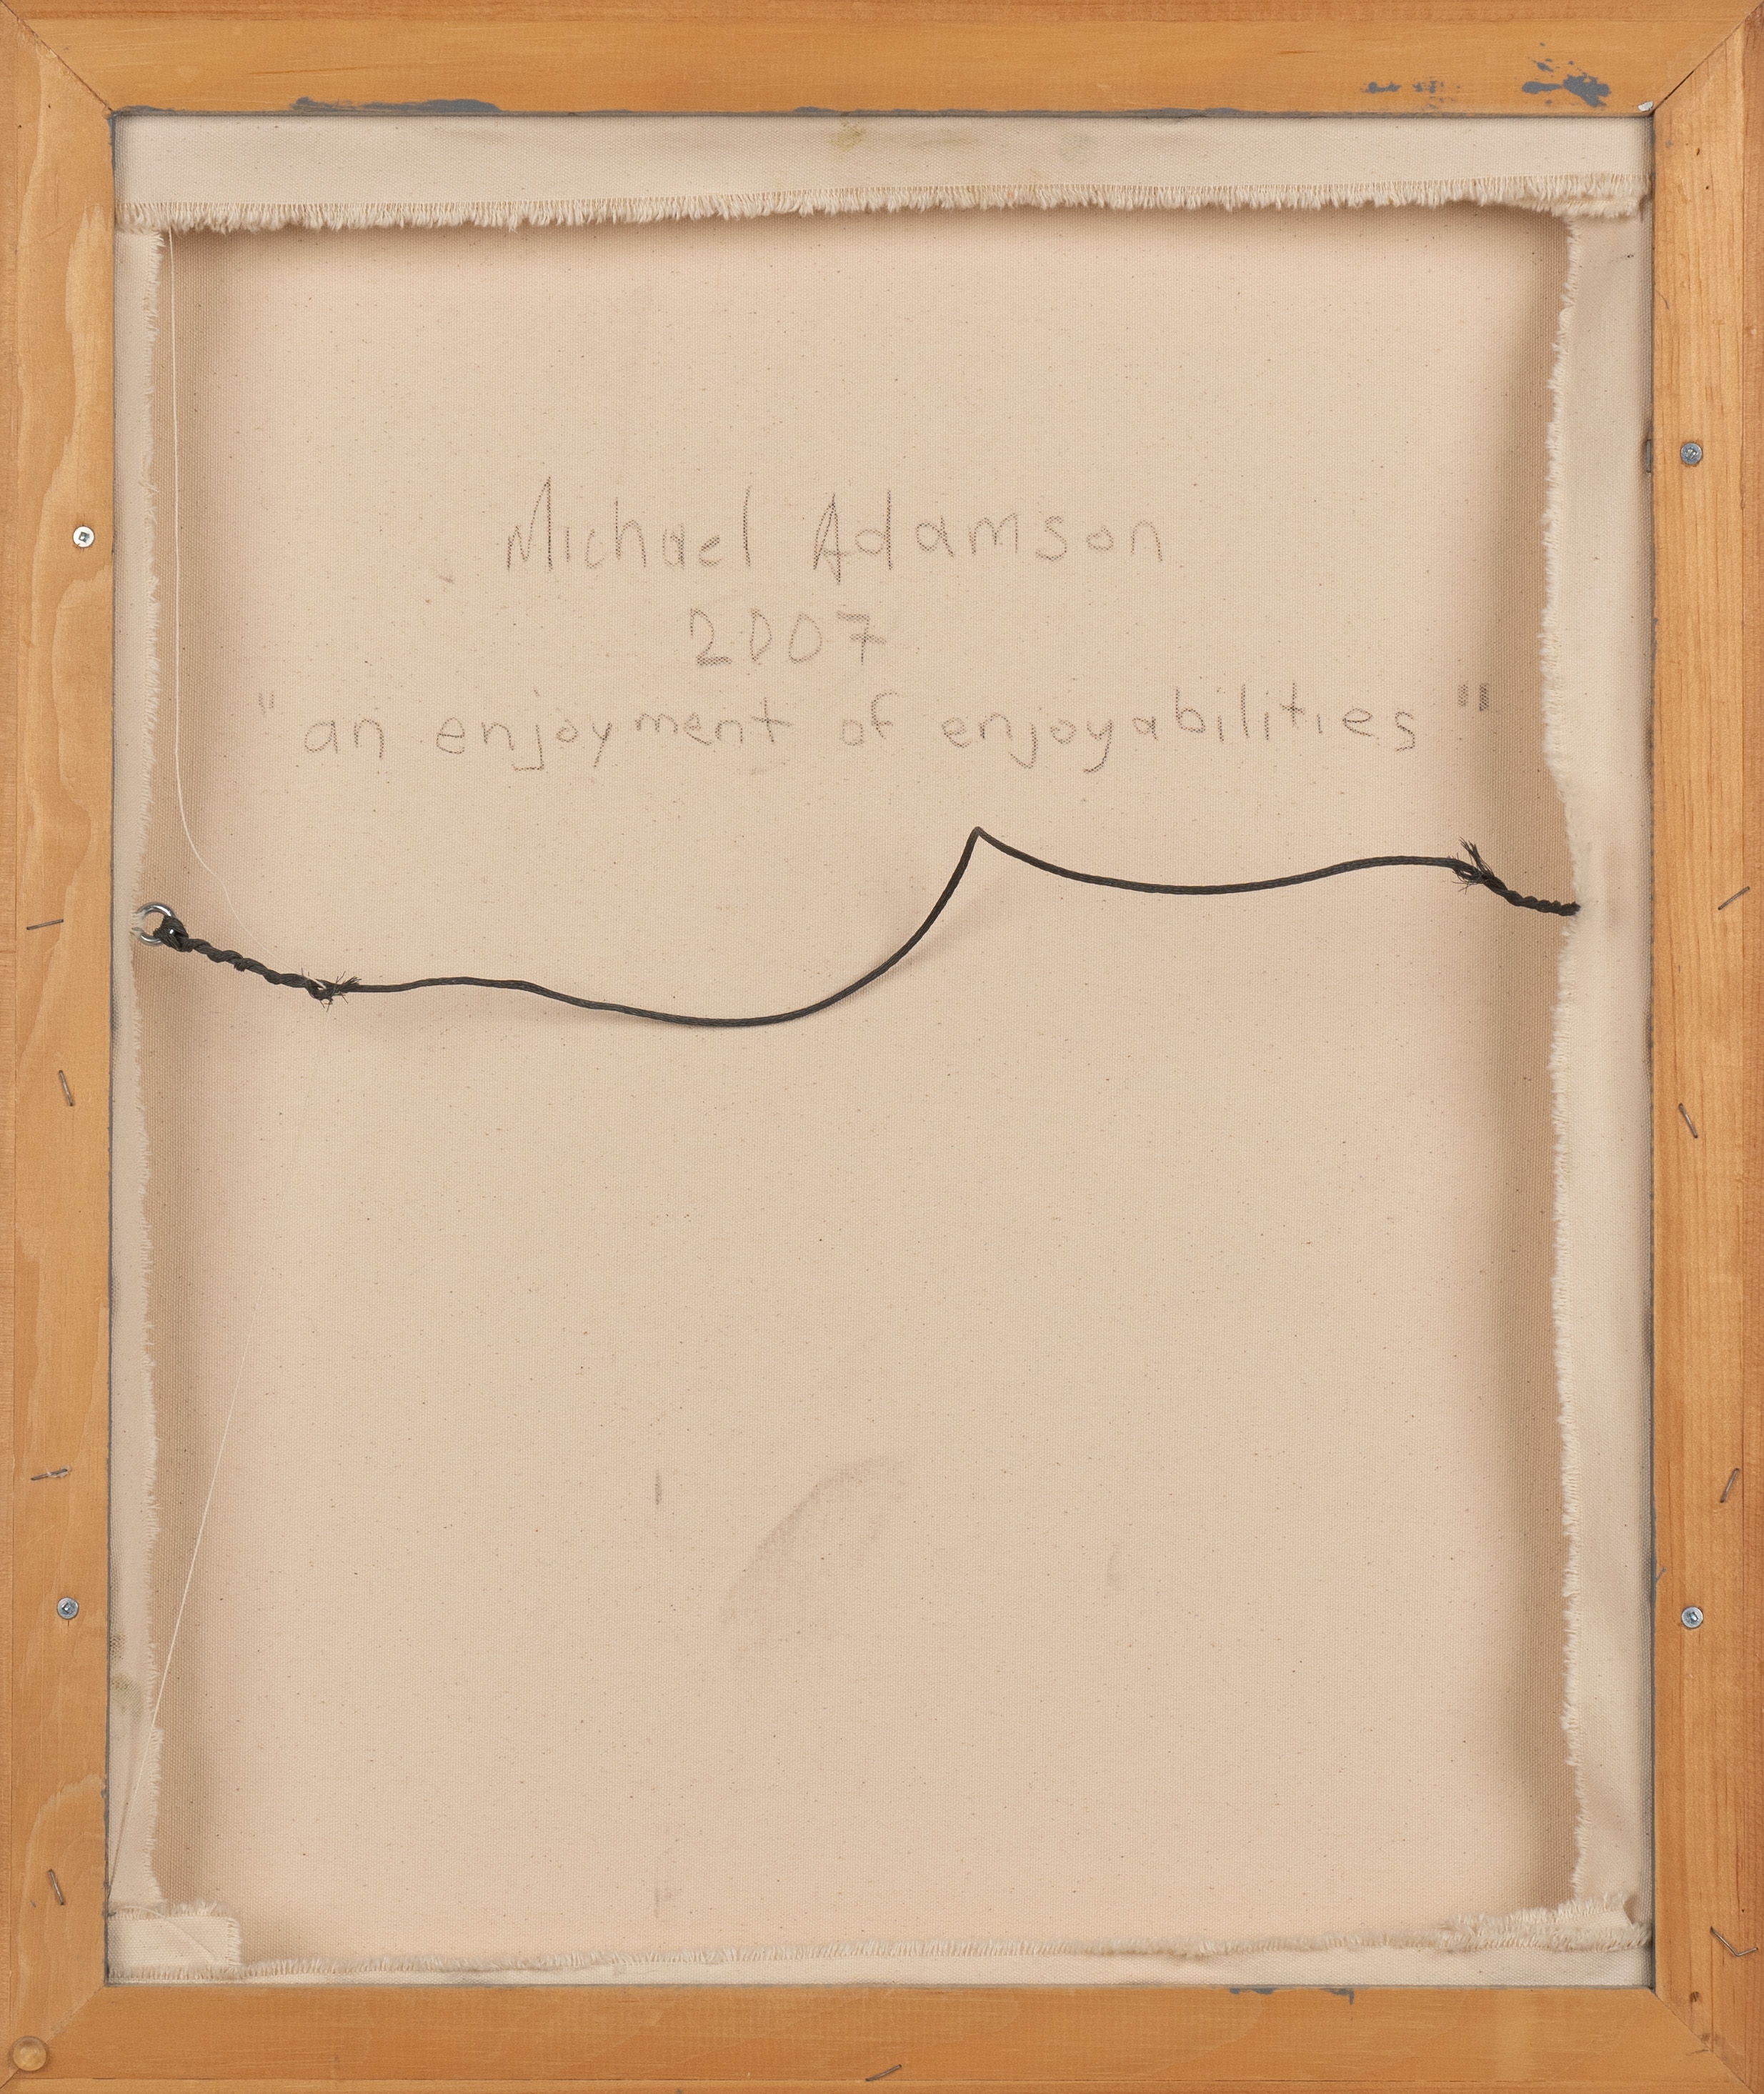 Michael Adamson
2007
"an enjoyment of enjoyabilities"